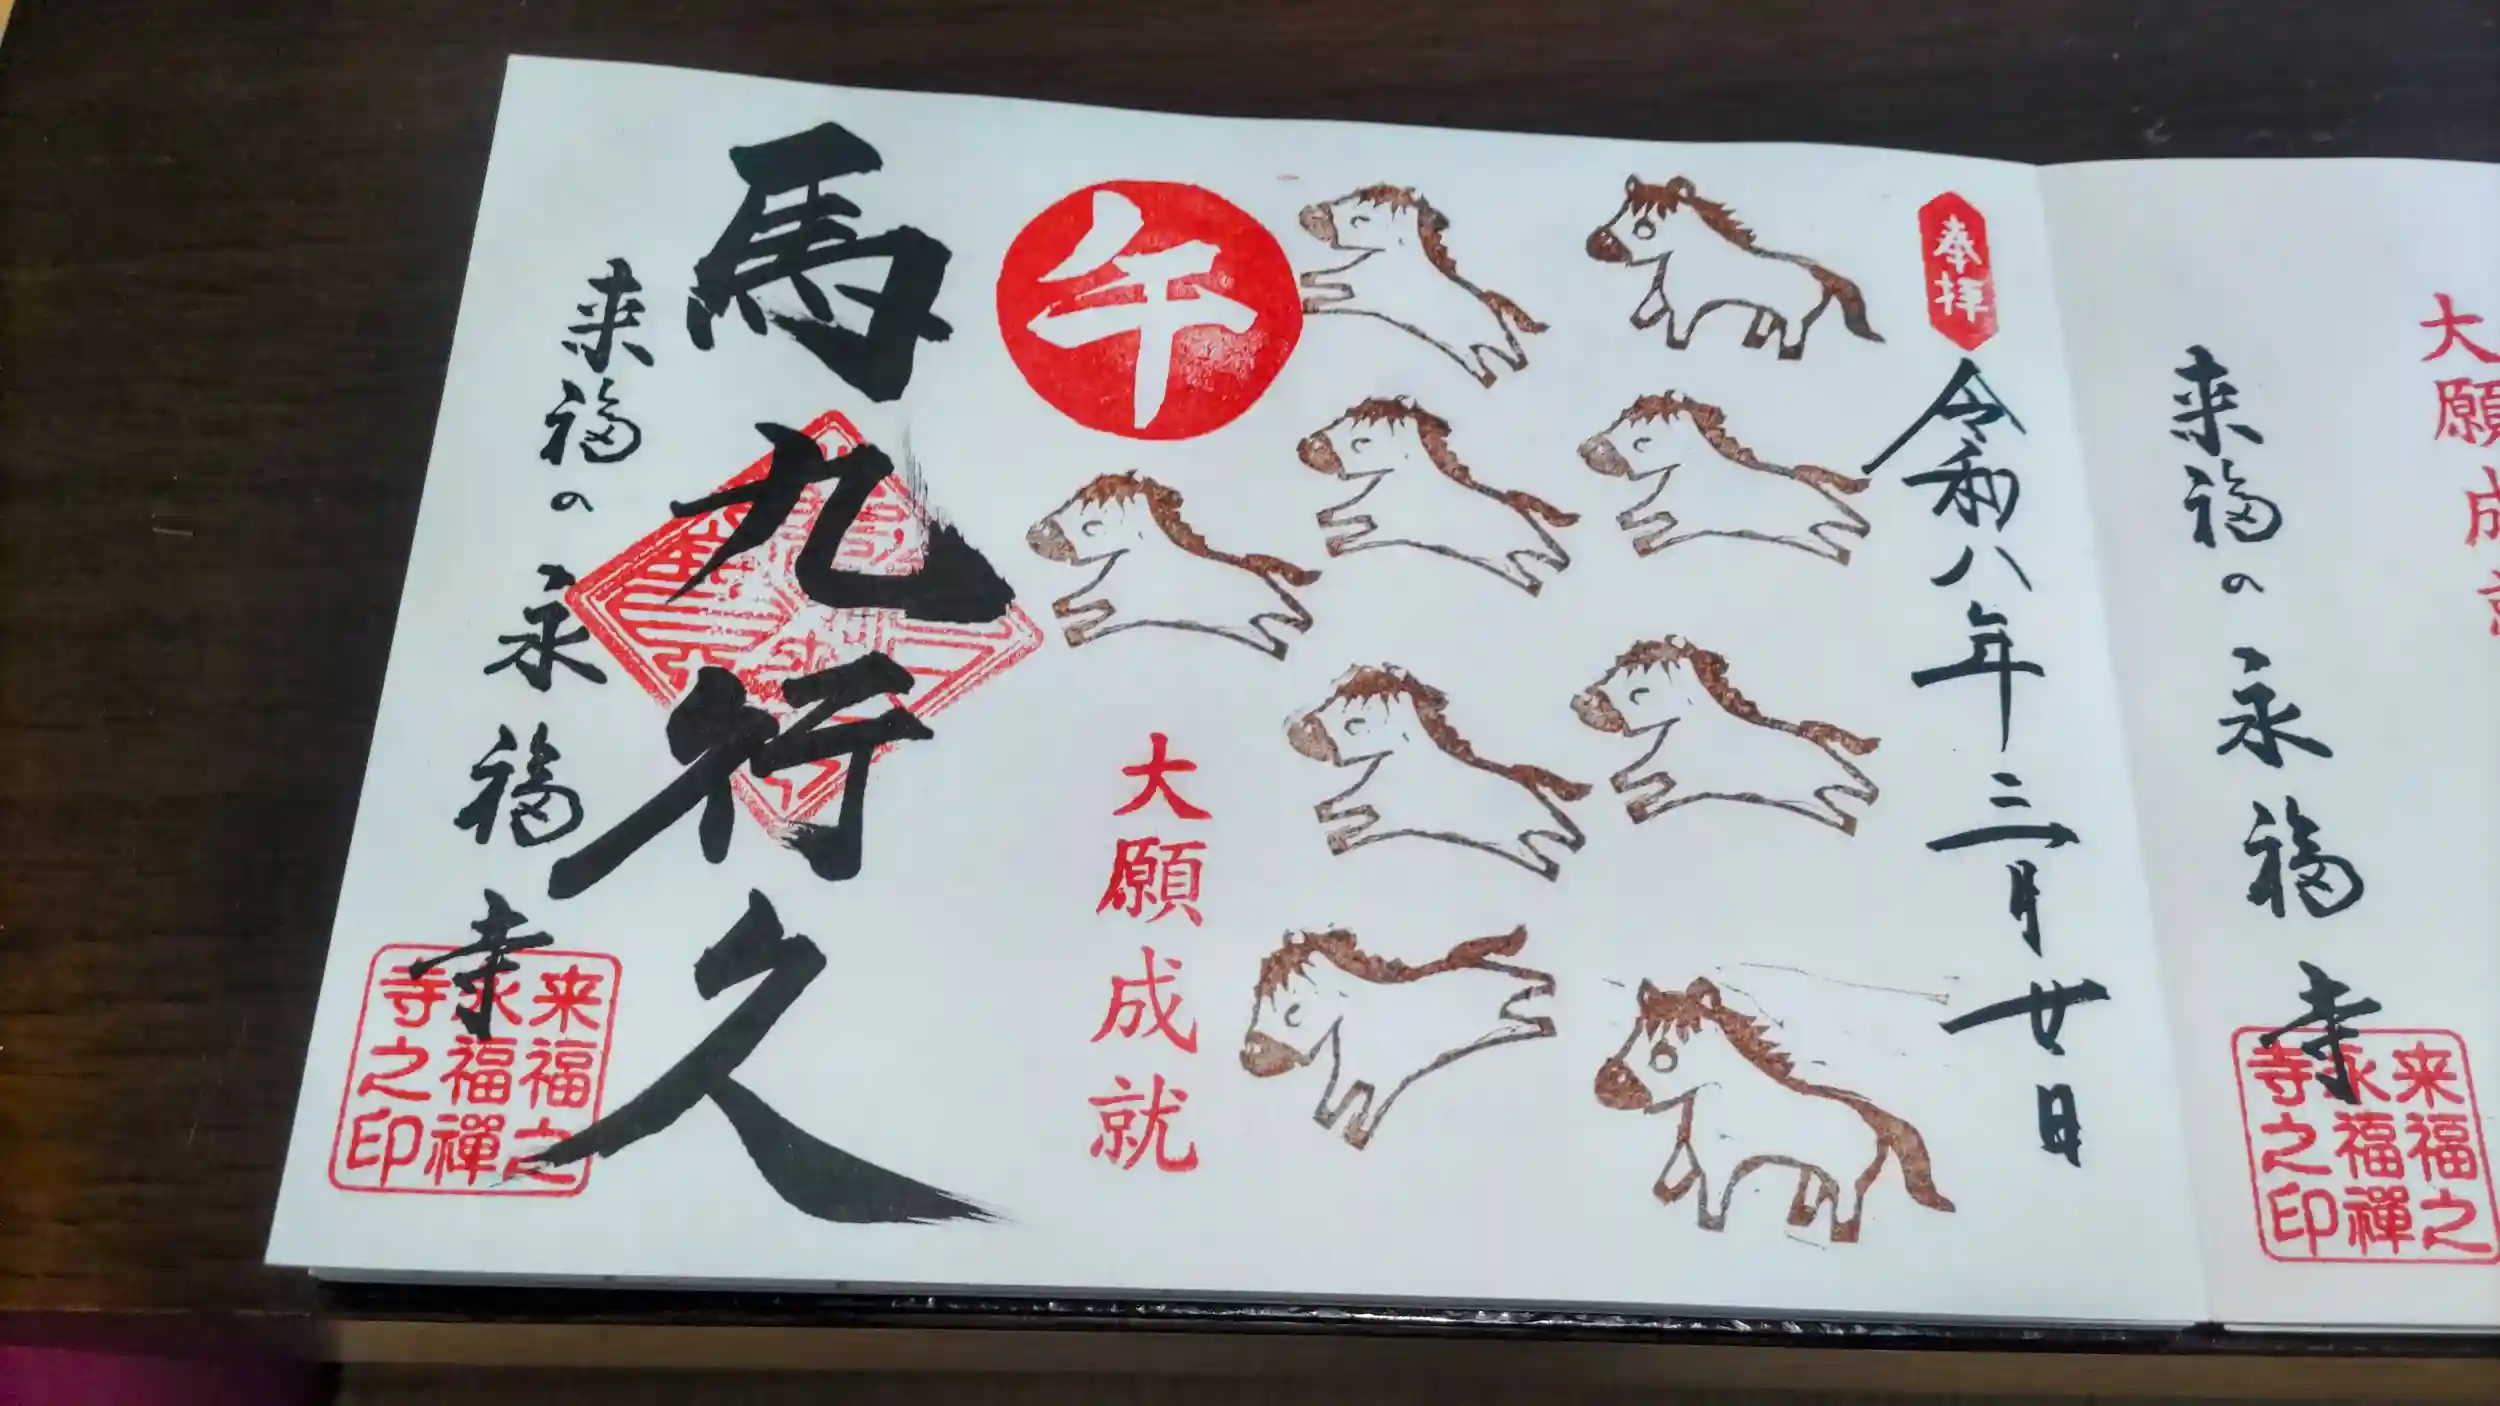 奉拝
令和八年三月廿日
午
大願成就
馬九行久
来福の永福寺
来福之
永福禅
寺之印
大願成就
来福の永福寺
来福之
永福禅
寺之印